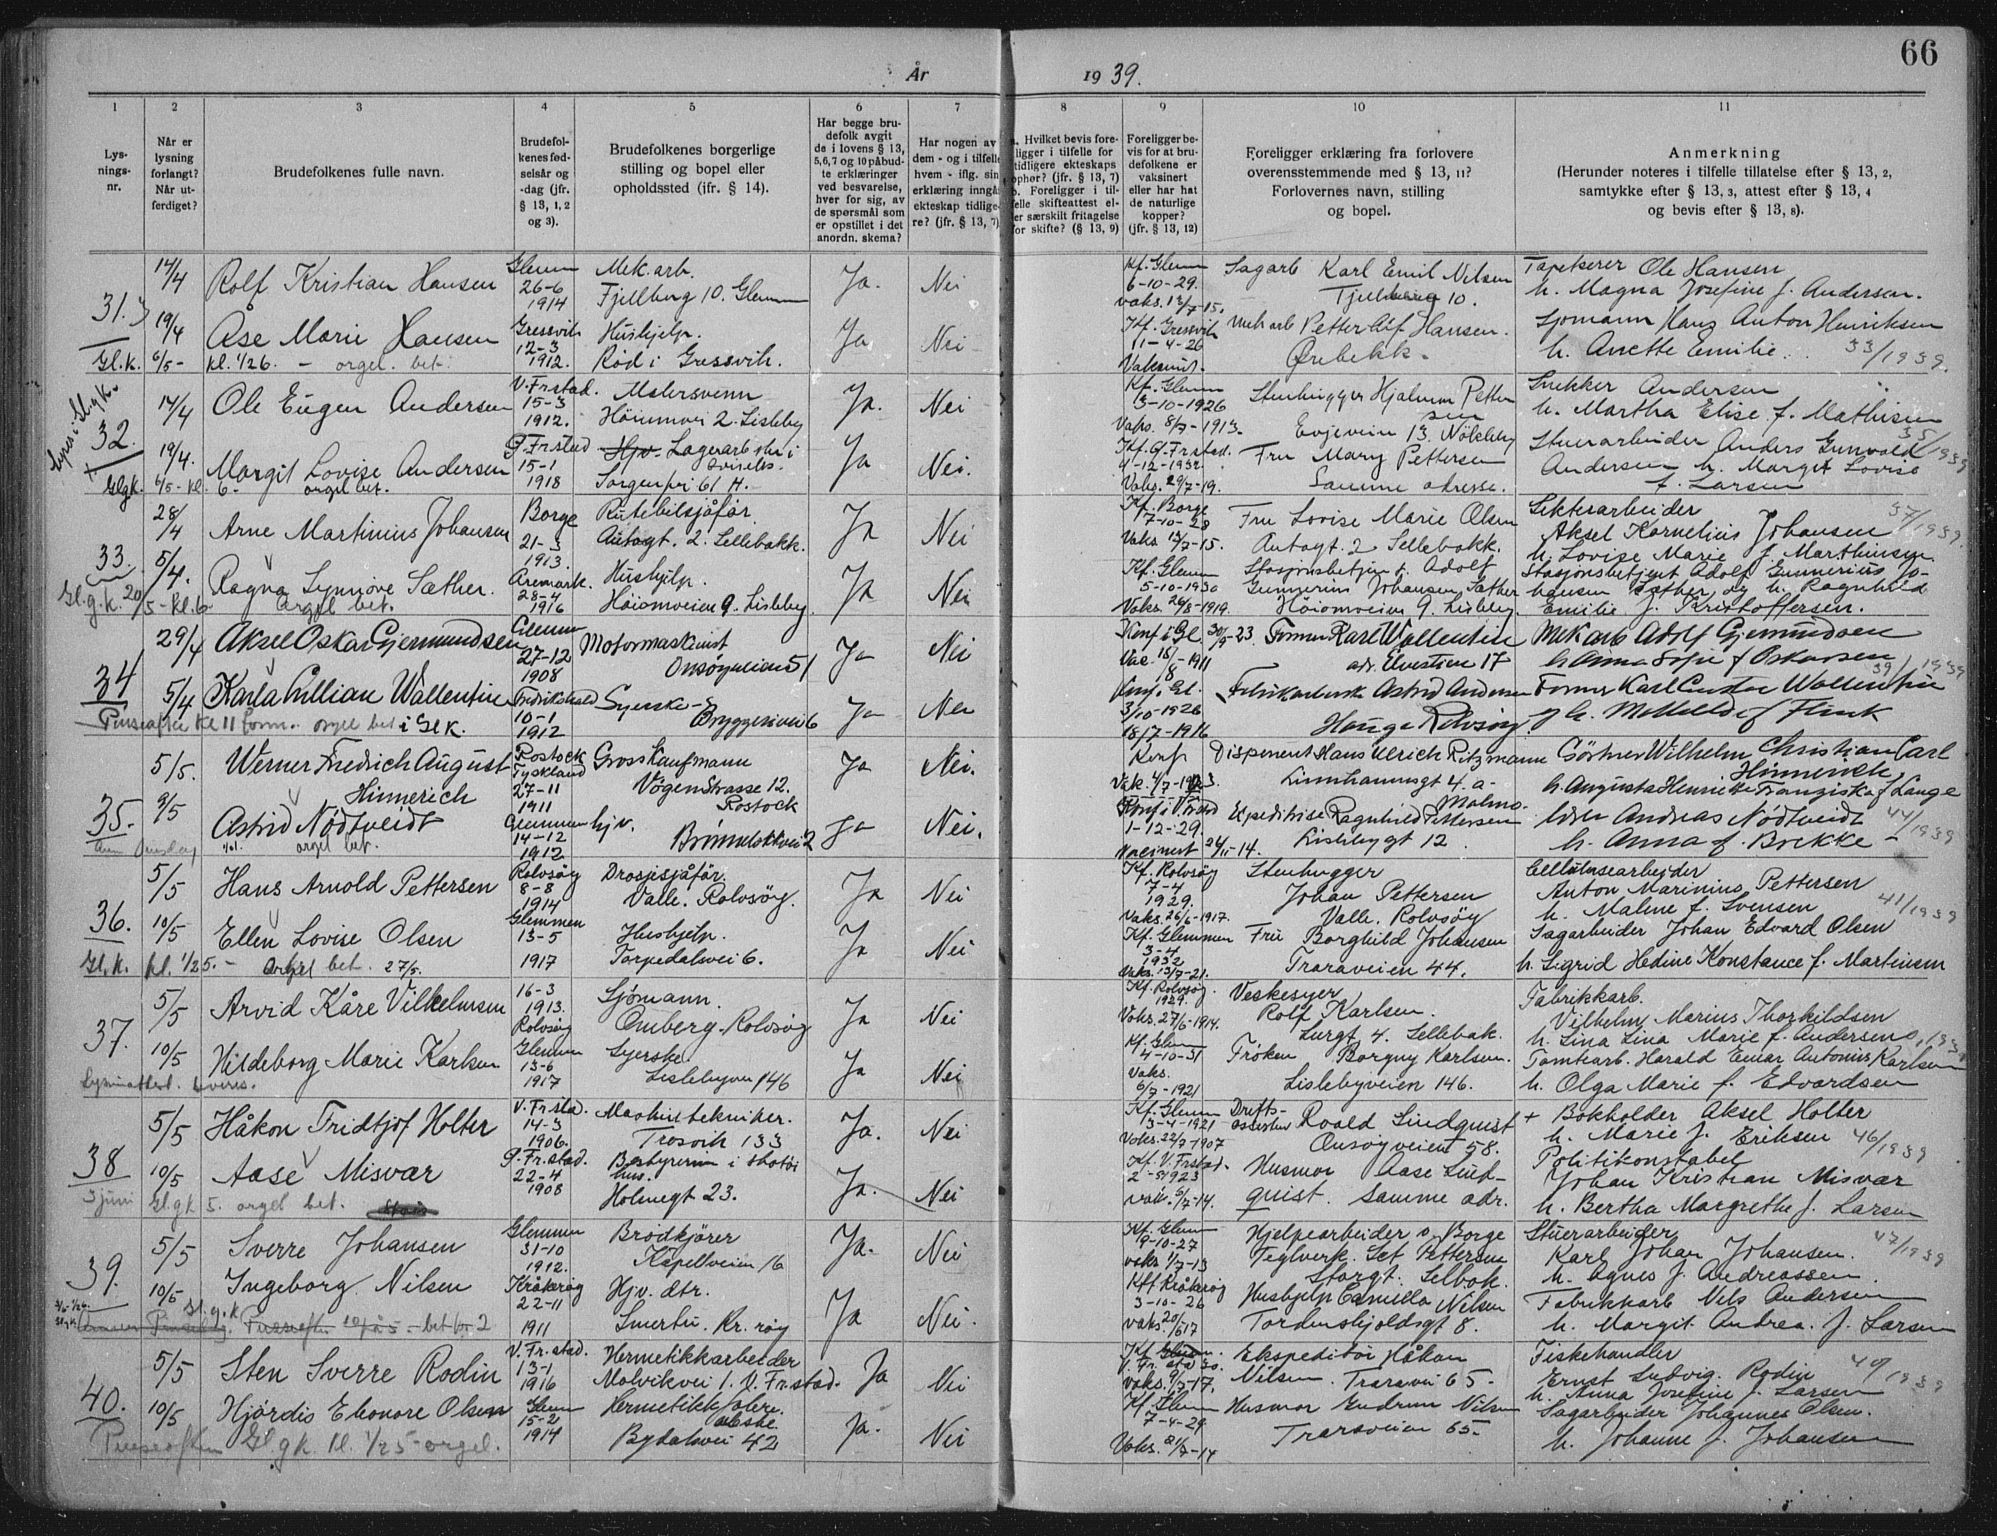 66
År 1939.
1 2 3 4 5 6 7 8 9 10 11
Lys-
nings-
nr.
Når er
lysning
forlangt?
Når ut-
ferdiget?
Brudefolkenes fulle navn.
Brudefol-
kenes fød-
selsår og
-dag (jfr.
§ 13, 1, 2
og 3).
Brudefolkenes borgerlige
stilling og bopel eller
opholdssted (jfr. § 14).
Har begge bru-
defolk avgit
de i lovens § 13,
5,6,7 og 10 påbud-
te erklæringer
ved besvarelse,
hver for sig, av
de spørsmål som
er opstillet i det
anordn. skema?
Har nogen av
dem - og i tilfelle
hvem - iflg. sin
erklæring inngå
ekteskap tidlige-
re? (jfr. § 13, 7)
a. Hvilket bevis fore-
ligger i tilfelle for
tidligere ekteskaps
ophør? (jfr. § 13, 7)
b. Foreligger i til-
felle skifteattest el-
ler særskilt fritagelse
for skifte? (§ 13, 9)
Foreligger be-
vis for at bru-
defolkene er
vaksinert
eller har hat
de naturlige
kopper?
(jfr. § 13, 12)
Foreligger erklæring fra forlovere
overensstemmende med § 13, 11?
Forlovernes navn, stilling
og bopel.
Anmerkning
(Herunder noteres i tilfelle tillatelse efter § 13, 2,
samtykke efter § 13, 3, attest efter § 13, 4
og bevis efter § 13, 8).
31.
14/4 Rolf Kristian Hansen
Glemm 26-6 1914
Mek. arb.
Fjellberg 10. Glemm
Ja. Nei
Kf. Glemm 6-10-29.
Sagarb Karl Emil Nilsen
10.
Tapetserer Ole Hansen
h. Magna Josefine f. Andersen.
19/4 Åse Marie Hansen
Gressvik 12-3 1912.
Hushjelp.
Rød i Gressvik.
Ja Nei
Kf. Gressvik 11-4-26
Petter Alf Hansen.
Ørebekk.
Sjømann Hans Anton Henriksen
h. Anette Emilie. 33/1939.
Gl.k. 6/5- kl. 1/26. - orgel. bet.
32.
14/4 Ole Eugen Andersen
V. Fr.stad. 15-3 1912.
Malersvenn
2. Lisleby
Ja. Nei
Kf. Glemm 3-10-1926
Vaks. 8/7-1913.
Stenhugger Hjalmar Petter
sen
Evjeveien 13.
Snekker Andersen
h. Martha Elise f. Mathisen
35/1939
19/4. Margit Lovise Andersen
15-1 1918
Lagerarb
61 H.
Ja Nei.
Vaks. 29/7-19.
Fru Mary Pettersen
Samme adresse.
Stuerarbeider Anders Gunvald
Andersen h. Margit Lovise
f. Larsen
Glgk. 6/5- kl. 6- orgel bet.
33.
28/4 Arne Martinius Johansen
Borge 21-3 1913.
Rutebilsjåfør.
2. Sellebakk.
Ja Nei
Kf. Borge 7-10-28
Vaks 13/7-15.
Fru Lovise Marie Olsen
2 Sellebakk.
Sekterarbeider
Aksel Kornelius Johansen
37/1939.
h. Lovise Marie f. Marthinsen
5/4. Ragna Synnøve Sæther.
Aremark. 28-4 1916
Hushjelp.
Høiomveien 9. Lisleby.
Ja Nei
Kf. Glemm 5-10-1930
Vaks. 26/8-1919.
Stasjonsbetjen. Adolf
Gunnerius Johansen Sæther
Høiomveien 9. Lisleby.
Stasjonsbetjent Adolf Gunnerius Jo-
hansen Sæther og h. Ragnhild
Emilie f. Kristoffersen.
Gl.g.k. 20/5 - kl. 6 orgel bet.
34
29/4 Aksel Oskar Gjermundsen
Glemm 27-12 1908
Motormaskinist
Onsøyveien 51
Ja Nei
Konf i Gl. 30/9-23.
Former Karl Wallentin
adr. Elvestien 17
Mek arb Adolf Gjermundsen
h Anna Sofie f Oskarsen
39/1939
5/4 Karla Lillian Wallentin
Fredrikstad 10-1 1912
Syerske-
Bryggeriveien 6
Ja Nei
3/10-1926
18/7-1916
Fabrikarbeiderske Astrid Andersen
Hauge Rolvsøy
Former Karl Gustav Wallentin
og h. Methilde f Flink
Pinseaften kl 11 form. orgel bet i Gl.k.
35.
5/5. Werner Fredrich August
Hinnerich
Rostock Tyskland 27-11 1911
Grosskaufmann
Vögenstrasse 12.
Rostock
Ja Nei.
Konf
Disponent Hans Ulrich Ritzmann
Linnhamnsgt 4.a
Malmø
Gärtner Wilhelm Christian Carl
Hinnerich
h. Augusta Henriette Franziska f Lange
9/5 Astrid Nødtveidt
Glemmen 14-12 1912
hjv.
Ja Nei.
1-12-29.
Ekspeditrise Ragnhild Pettersen
Lislebygt 12
Lærer Andreas Nødtveidt
44/1939
h. Anna f. Brekke
orgel bet.
36.
5/5 Hans Arnold Pettersen
Rolvsøy 8-8 1914
Drosjesjåfør.
Valle. Rolvsøy.
Ja Nei
Kf. Rolvsøy 7-4 1929.
Vaks. 26/6-1917.
Stenhugger
Johan Pettersen
Valle. Rolvsøy
Cellulosearbeider
Anton Marinius Pettersen
h. Malene f. Svensen 41/1939
10/5 Ellen Lovise Olsen
Glemmen 13-5 1917
Hushjelp.
Torpedalsvei 6.
Ja Nei
Kf. Glemmen 3-4 1932
Vaks. 13/7-21.
Fru Borghild Johansen
Traraveien 44.
Sagarbeider Johan Edvard Olsen
h. Sigrid Hedine Konstance f. Martinsen
Gl.k. kl. 1/2 5. - Orgel bet. 27/5.
37.
5/5 Arvid Kåre Vilhelmsen
16-3 1913. Rolvsøy
Sjømann.
Omberg. Rolvsøy
Ja Nei
Kf. Rolvsøy. 1929.
Vaks. 27/6-1914.
Veskesyer
Rolf Karlsen.
4. Sellebak.
Fabrikkarb.
Vilhelm Marius Thorkildsen
h. Lina Lina Marie f. Andersen
10/5 Hildeborg Marie Karlsen
Glemm 13-6 1917
Syerske.
Lislebyvei 146
Ja Nei
Kf. Glem 4-10-31
Vaks. 6/7-1921
Frøken Borgny Karlsen.
Lislebyveien 146.
Tomtearb. Harald Einar Antonius Karlsen
h. Olga Marie f. Edvardsen
38
5/5 Håkon Fridtjof Holter
V. Fr.stad. 14-3 1906.
Maskintekniker.
Trosvik 133
Ja. Nei
Kf. Glemm 3-4-1921
Vaks. 22/7-1907
Drifts- Roald Lindquist
Onsøyveien 58.
+ Bokholder Aksel Holter
h. Marie f. Eriksen 46/1939
10/5 Aase Misvær
22-4 1908
Bestyrerinne i
hus.
Holmegt 23.
Ja. Nei
Kf. V. Frstad.
Vaks. 6/7-14.
Husmor Aase Lind-
quist. Samme adr.
Politikonstabel
Johan Kristian Misvær
h. Bertha Margrethe f. Larsen
3 juni Gl.gk 5. orgel bet.
39.
5/5 Sverre Johansen
Glemmen 31-10 1912.
Brødkjører
Kapellveien 16
Ja. Nei
Kf. Glemm 9-10-27
vaks 1/7-13
Hjelpearbeider v. Borge
Teglverk. Pettersen
Storgt. Selbak.
Stuerarbeider 47/1939
Karl Johan Johansen.
h. Agnes f. Andreassen
10/5 Ingeborg Nilsen
Kråkerøy 22-11 1911
Hjv. dtr.
Smertu. Kr. røy
Ja Nei.
Kf Kråkerøy 3-10-26
Hushjelp Camilla Nilsen
Tordenskjoldsgt 8.
Fabrikkarb Nils Andersen
h. Margit Andrea. f. Larsen
40.
5/5 Sten Sverre Rodin
V. Fr.stad. 13-1 1916
Hermetikkarbeider
Malvikvei 1. V. Fr.stad.
Ja Nei
Ekspeditør Håkon
Nilsen. Traravei 65.
Fiskehandler
Ernst Ludvig. Rodin 49/1939
h. Anna Josefine f. Larsen
10/5 Hjørdis Eleonore Olsen
Glemm 15-2 1914
Bydalsvei 42
Ja. Nei
Kf. Glemm 7-4-29
Vaks. 21/7-14
Husmor Gudrun Nilsen
Traraveien 65.
Sagarbeider Johannes Olsen.
h. Johanne f. Johansen
Pinseaften Gl.gk kl. 1/25 - orgel.